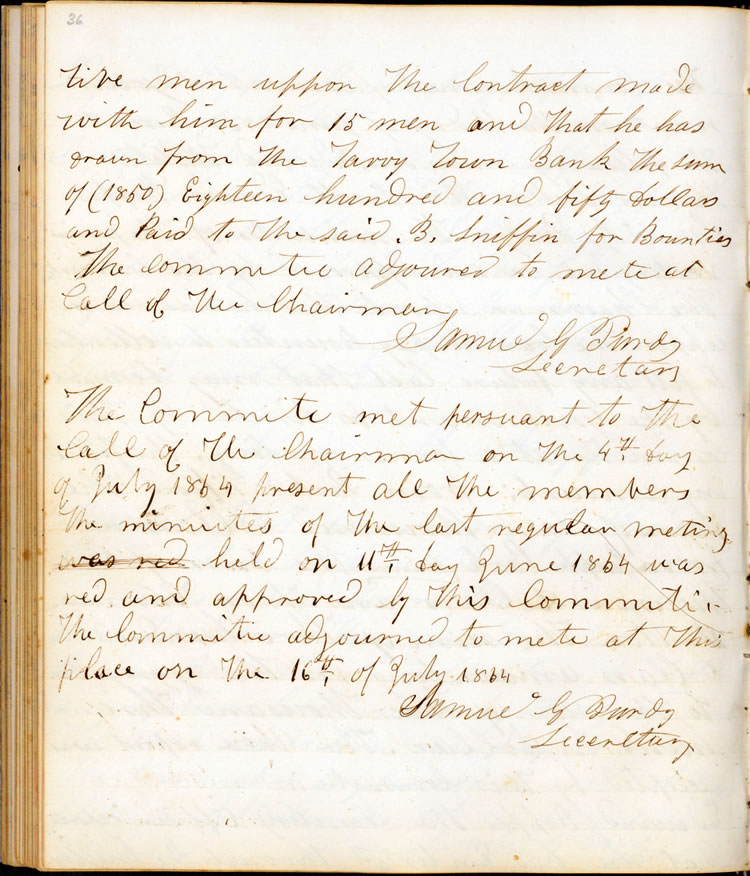 36
five men uppon the Contract made
with him for 15 men and that he has
drawn from the Tarry Town Bank the sum
of (1850) Eighteen hundred and fifty dollars
and Paid to the said B. Sniffin for Bounties
The Committe adjoured to mete at
Call of the Chairman
Samuel G Purdy
Secretary
The Committe met persuant to the
Call of the Chairman on the 4th day
of July 1864 present all the members
the minuites of the last regular meting
was red held on 11th day June 1864 was
red and approved by this Committe.
the Committe adjourned to mete at this
place on the 16th of July 1864
Samuel G Purdy
Secretary